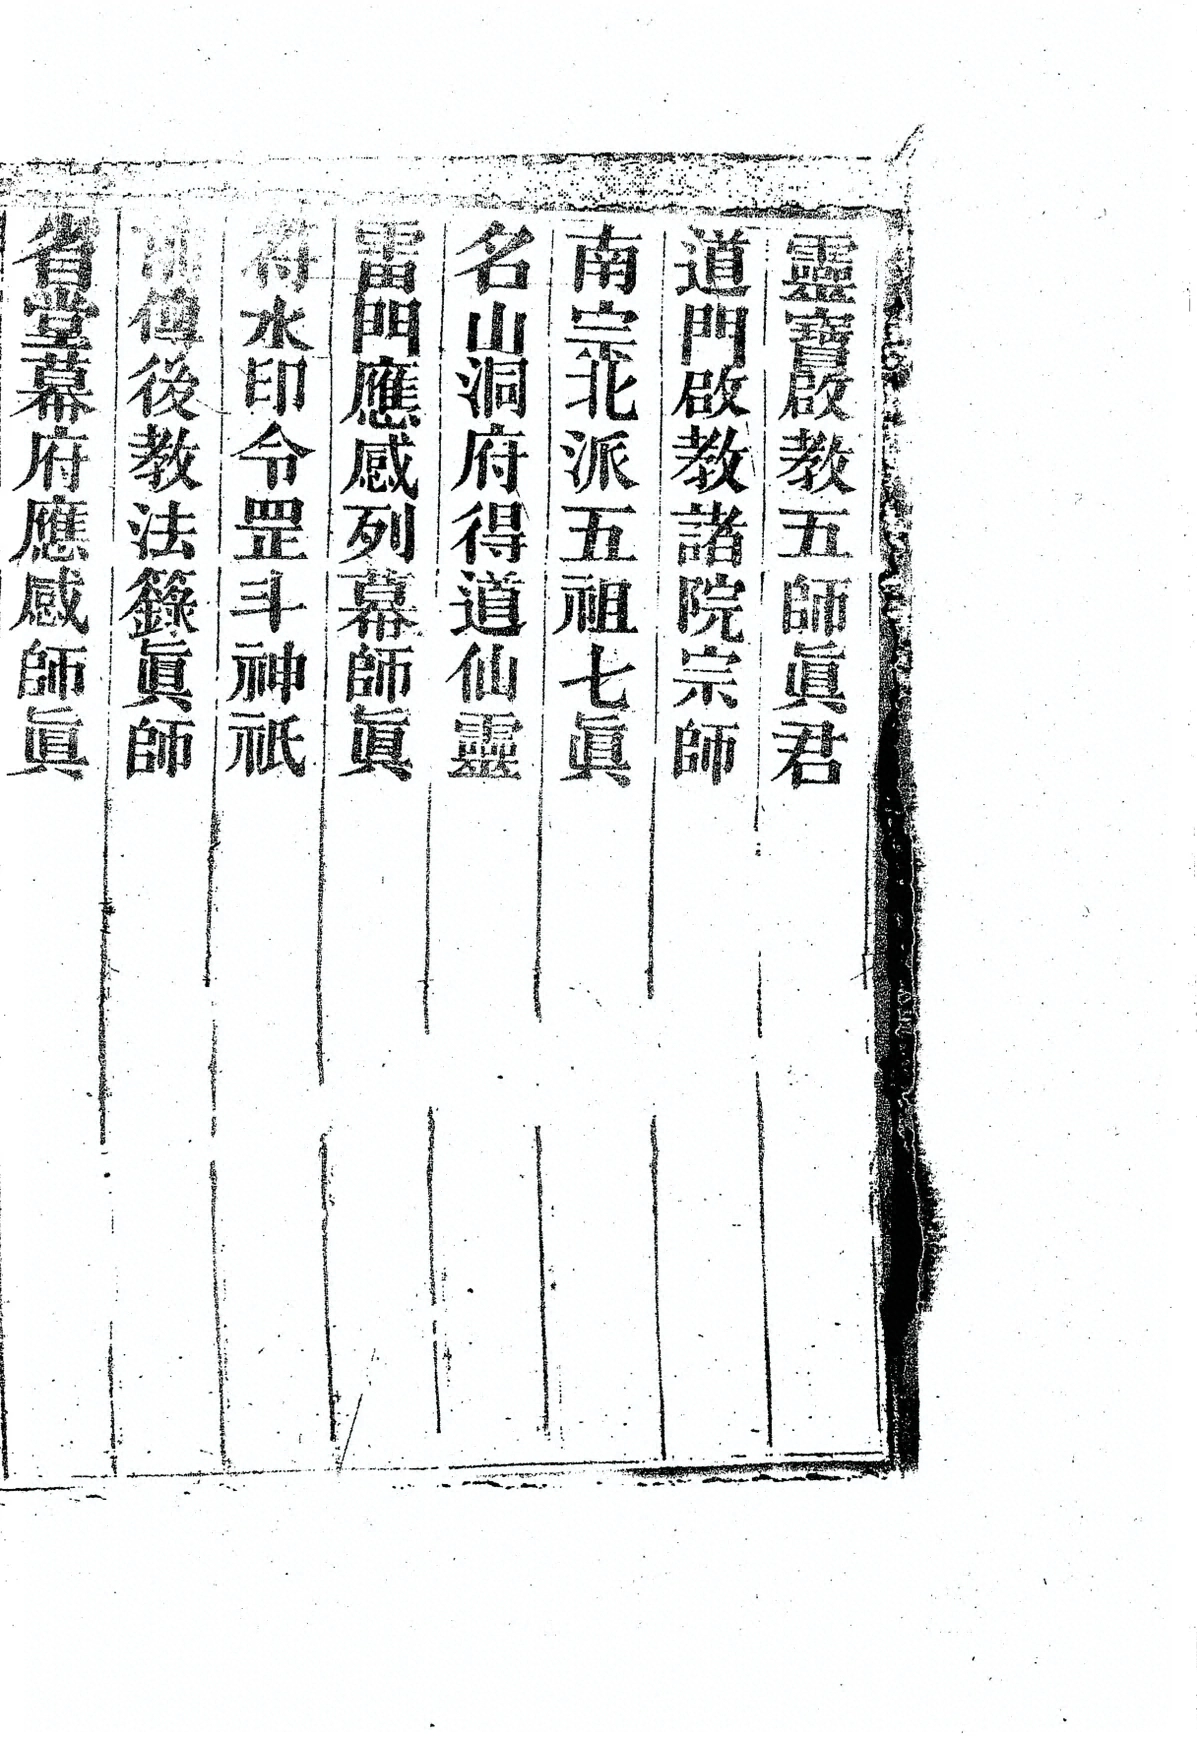 靈寶啟教五師眞君
道門啟教諸院宗師
南宗北派五祖七眞
名山洞府得道仙靈
雷門應感列幕師眞
符水印令罡斗神祇
前傳後教法籙眞師
省堂幕府應感師眞